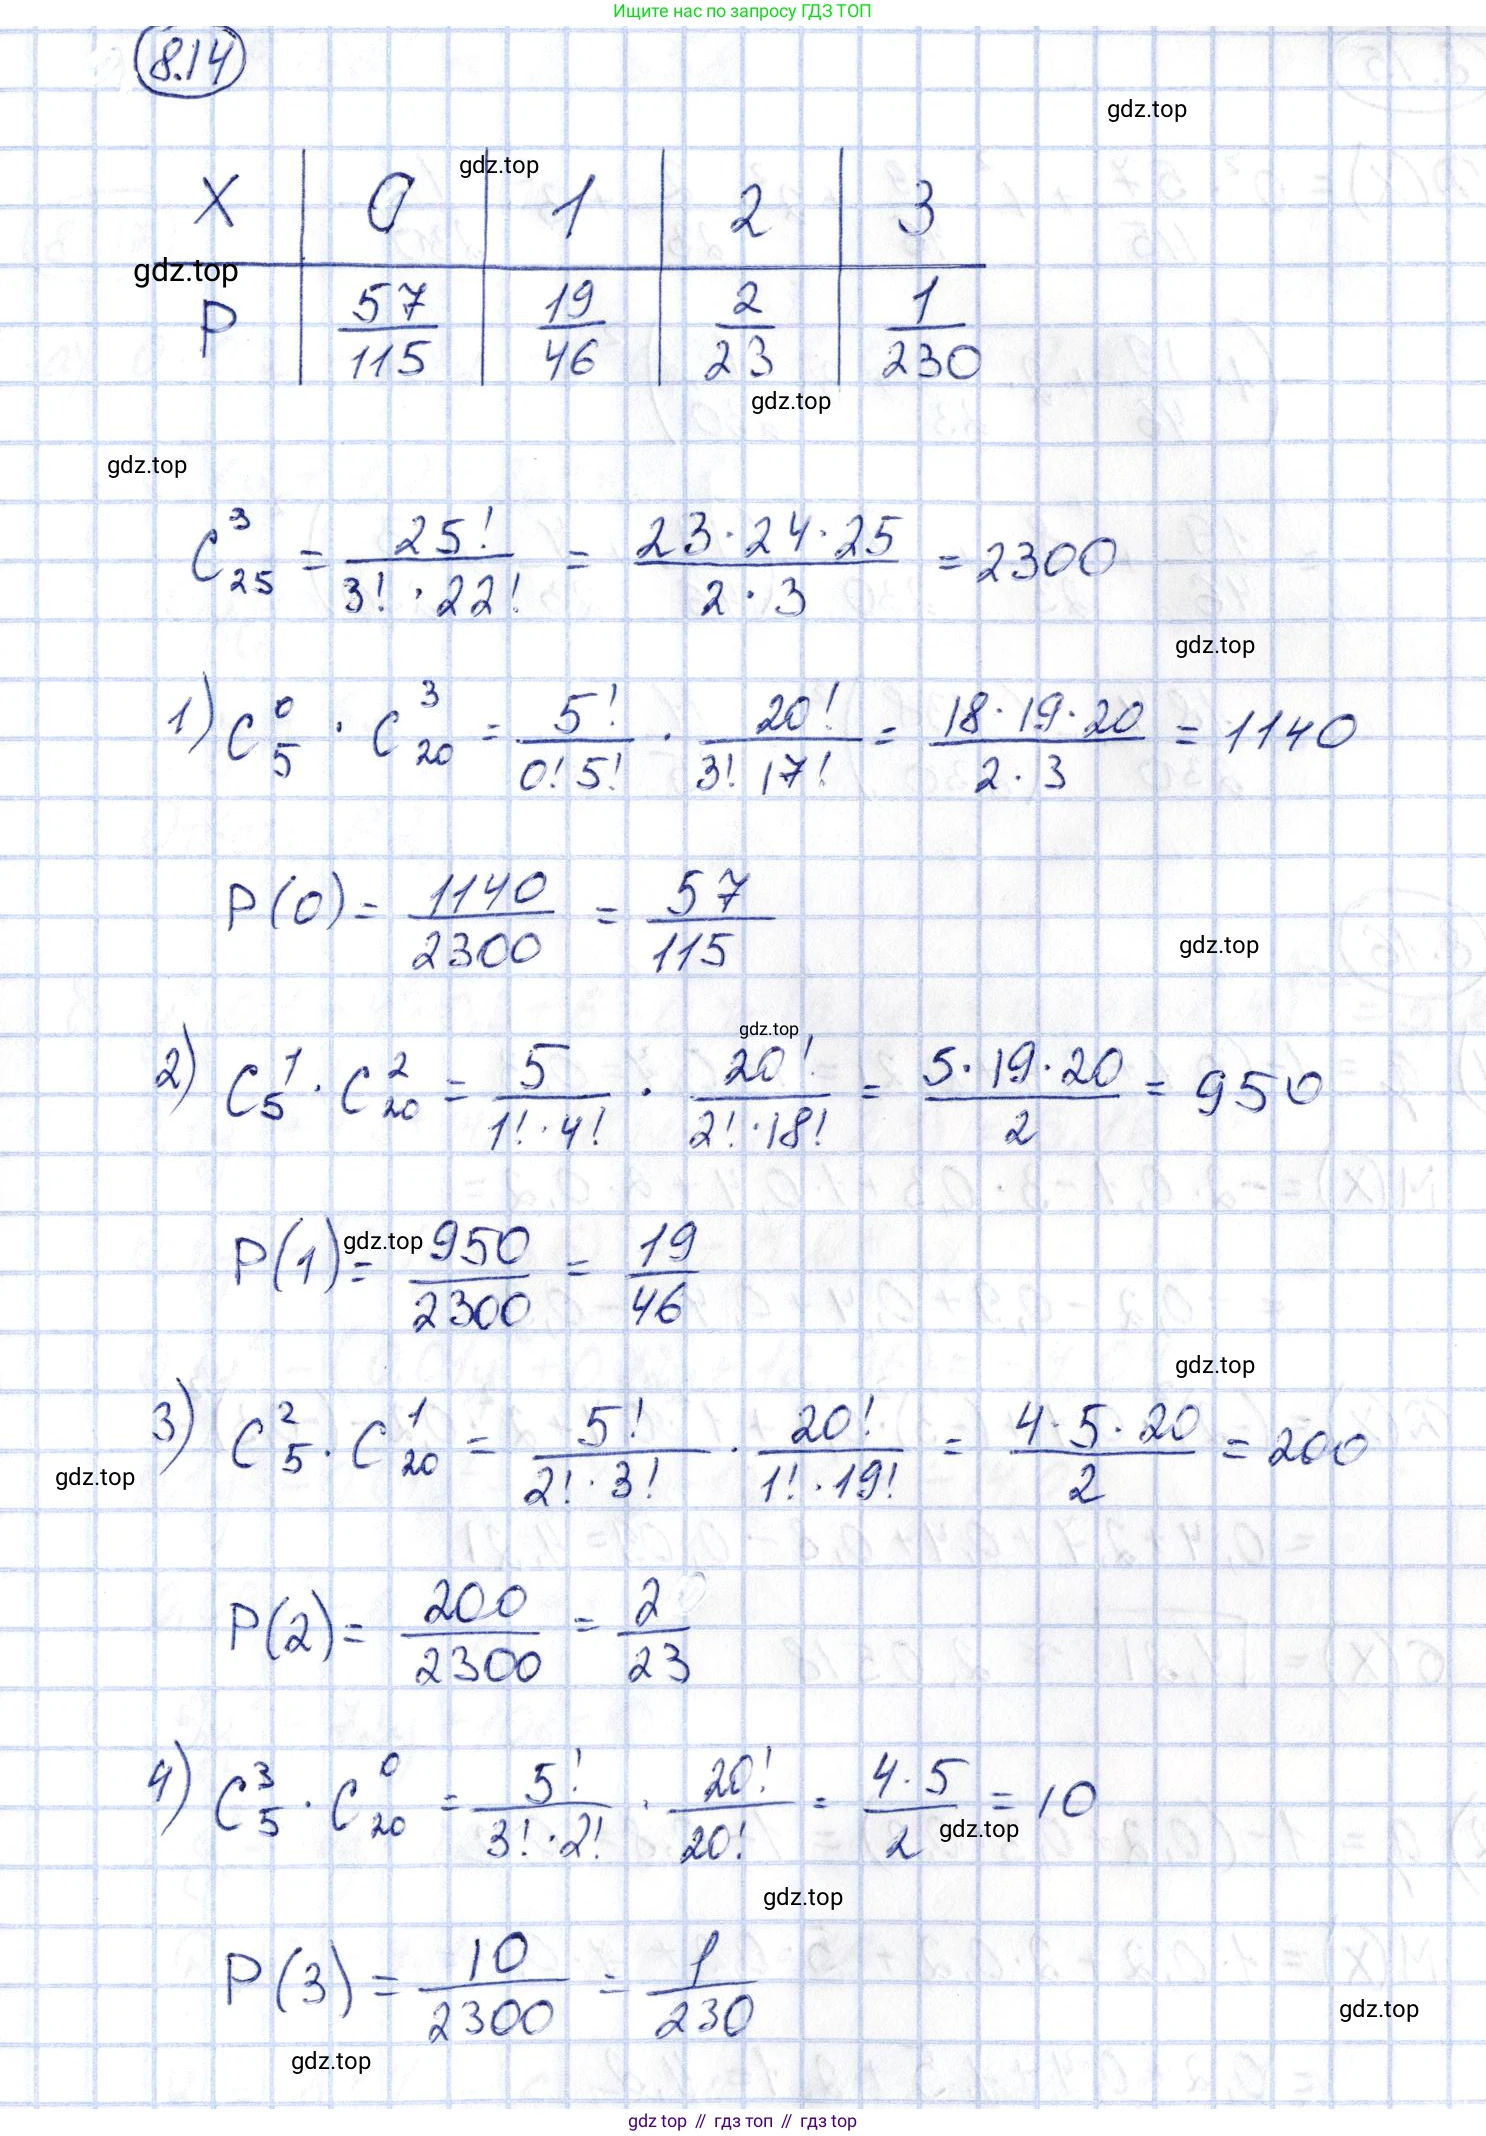 Ищите нас по запросу ГДЗ ТОП
8.14
gdz.top
gdz.top
X | 0 | 1 | 2 | 3
gdz.top
P | 57/115 | 19/46 | 2/23 | 1/230
gdz.top
gdz.top
C_25^3 = 25!/(3! · 22!) = (23 · 24 · 25)/(2 · 3) = 2300
gdz.top
1) C_5^0 · C_20^3 = 5!/(0! 5!) · 20!/(3! 17!) = (18 · 19 · 20)/(2 · 3) = 1140
P(0) = 1140/2300 = 57/115
gdz.top
gdz.top
2) C_5^1 · C_20^2 = 5/(1! · 4!) · 20!/(2! · 18!) = (5 · 19 · 20)/2 = 950
gdz.top
P(1) = 950/2300 = 19/46
gdz.top
3) C_5^2 · C_20^1 = 5!/(2! · 3!) · 20!/(1! · 19!) = (4 · 5 · 20)/2 = 200
gdz.top
P(2) = 200/2300 = 2/23
4) C_5^3 · C_20^0 = 5!/(3! · 2!) · 20!/20! = (4 · 5)/2 = 10
gdz.top
gdz.top
P(3) = 10/2300 = 1/230
gdz.top
gdz.top
gdz top // гдз топ // gdz top